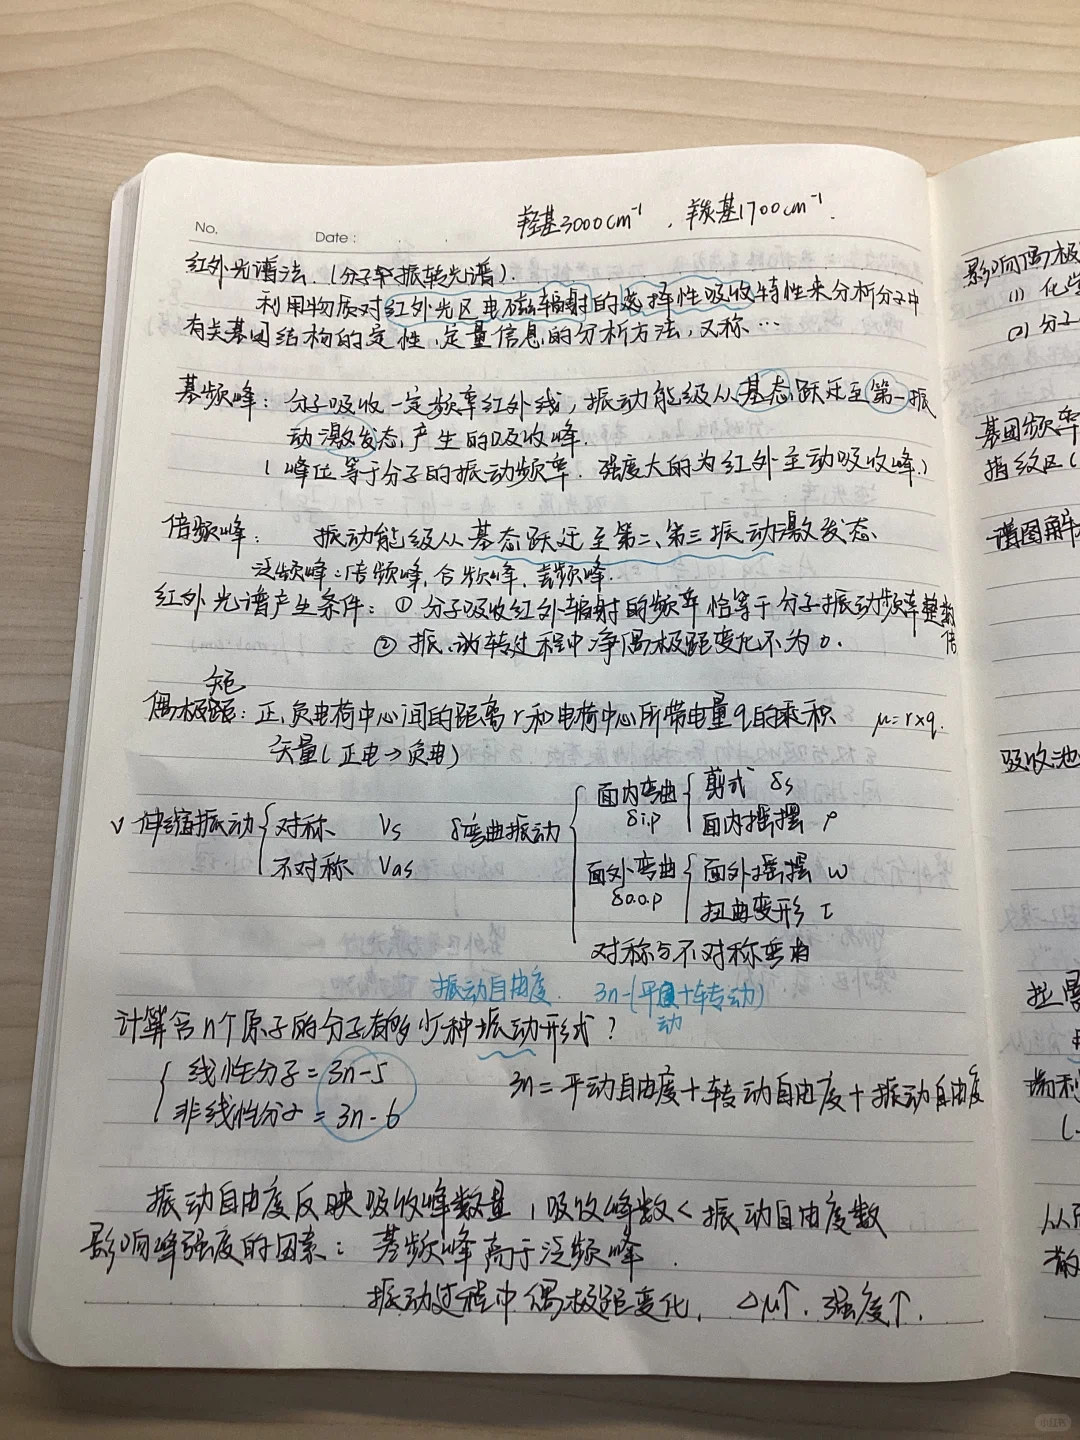 羟基3000cm⁻¹，羰基1700cm⁻¹.
No.
Date:
红外光谱法.(分子振转光谱).
利用物质对红外光区电磁辐射的选择性吸收特性来分析分子中
有关基团结构的定性、定量信息的分析方法,又称…
基频峰: 分子吸收一定频率红外线,振动能级从基态跃迁至第一振
动激发态,产生的吸收峰.
(峰位等于分子的振动频率.强度大的为红外主动吸收峰.)
倍频峰: 振动能级从基态跃迁至第二、第三振动激发态
泛频峰:倍频峰,合频峰,差频峰.
红外光谱产生条件: ① 分子吸收红外辐射的频率恰等于分子振动频率整数
倍
② 振动转过程中净偶极距变化不为0.
矩
偶极距: 正,负电荷中心间的距离r和电荷中心所带电量q的乘积 μ=r×q.
矢量(正电→负电)
ν 伸缩振动 对称 Vs
不对称 Vas
δ弯曲振动
面内弯曲 δi.p
剪式 δs
面内摇摆 ρ
面外弯曲 δo.o.p
面外摇摆 ω
扭曲变形 τ
对称与不对称弯曲
振动自由度. 3n-(平动+转动)
计算含n个原子的分子有多少种振动形式?
线性分子=3n-5
非线性分子=3n-6
3n=平动自由度+转动自由度+振动自由度
振动自由度反映吸收峰数量,吸收峰数<振动自由度数
影响峰强度的因素: 基频峰高于泛频峰.
振动过程中偶极距变化, Δμ↑.强度↑.
影响偶极
(1) 化学
(2) 分子
基团频率
指纹区(
谱图解
吸收池
小红书